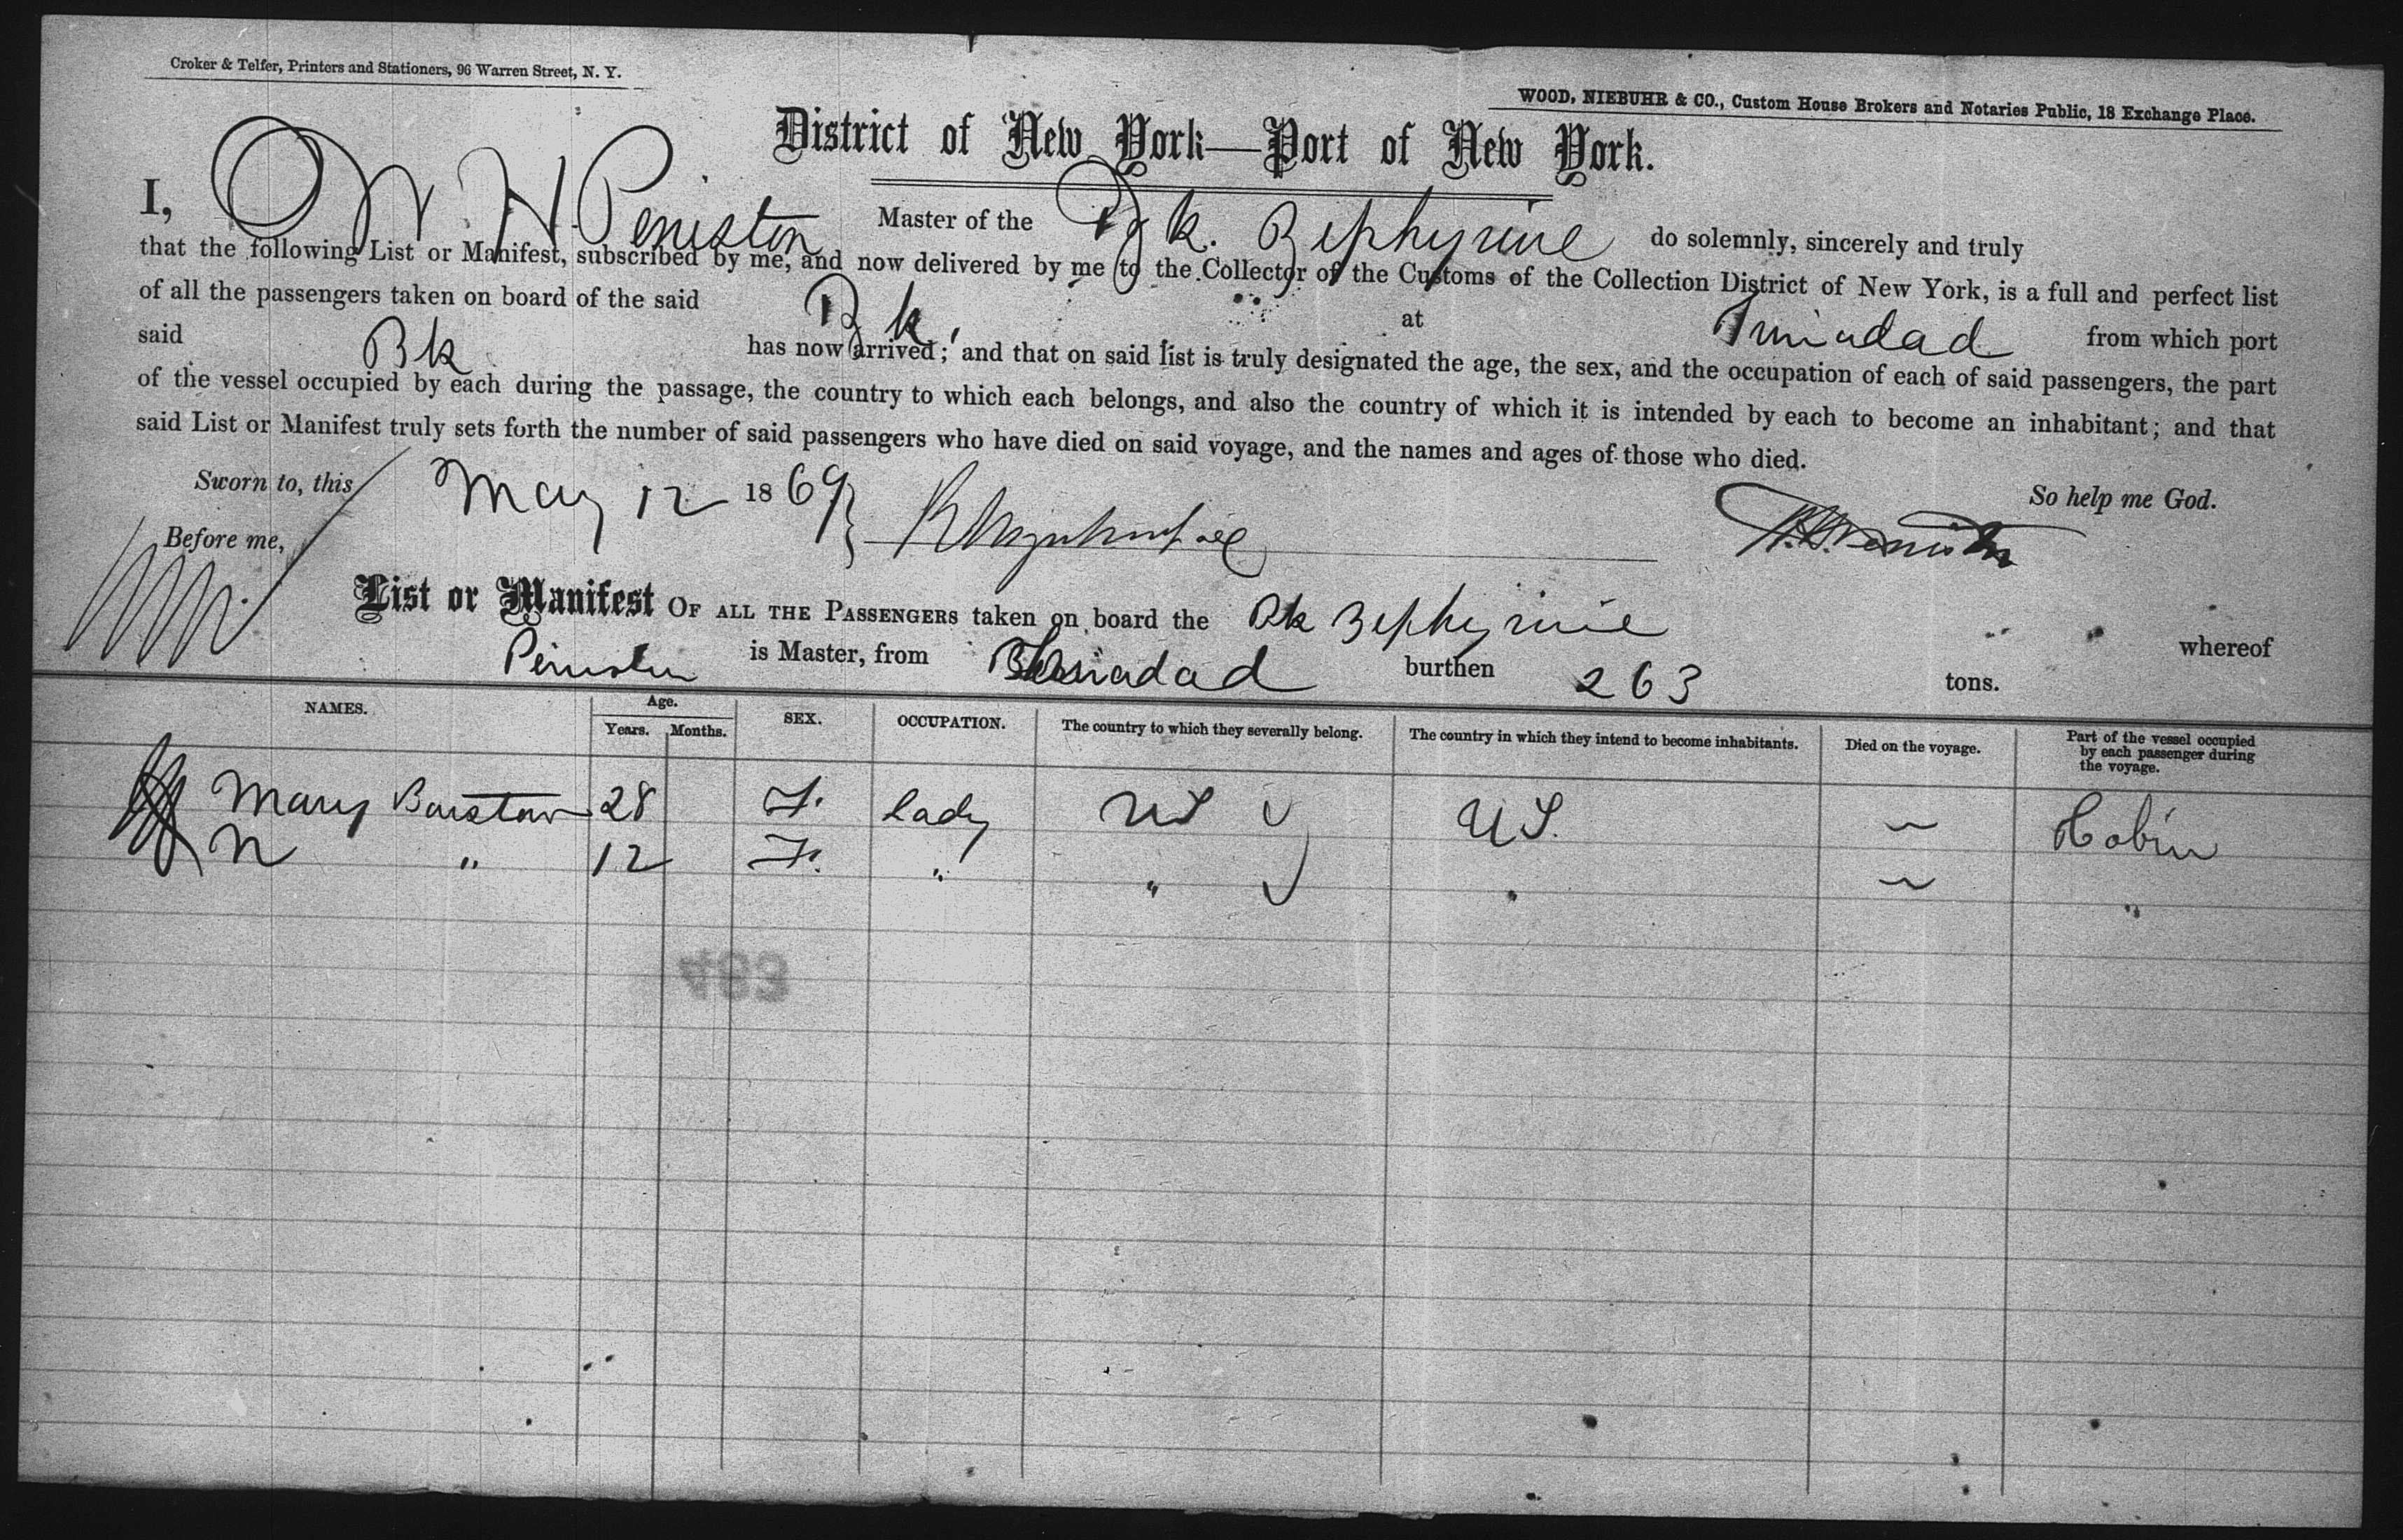 Croker & Telfer, Printers and Stationers, 96 Warren Street, N. Y.
WOOD, NIEBUHR & CO., Custom House Brokers and Notaries Public, 18 Exchange Place.
District of New York—Port of New York.
I, W H Peniston Master of the Bk. Zephyrine do solemnly, sincerely and truly
that the following List or Manifest, subscribed by me, and now delivered by me to the Collector of the Customs of the Collection District of New York, is a full and perfect list
of all the passengers taken on board of the said Bk. at Trinidad from which port
said Bk has now arrived; and that on said list is truly designated the age, the sex, and the occupation of each of said passengers, the part
of the vessel occupied by each during the passage, the country to which each belongs, and also the country of which it is intended by each to become an inhabitant; and that
said List or Manifest truly sets forth the number of said passengers who have died on said voyage, and the names and ages of those who died.
Sworn to, this May 12 1869 So help me God.
Before me, W. H. Peniston
List or Manifest OF ALL THE PASSENGERS taken on board the Bk Zephyrine whereof
Peniston is Master, from Trinidad burthen 263 tons.
NAMES. Age. Years. Months. SEX. OCCUPATION. The country to which they severally belong. The country in which they intend to become inhabitants. Died on the voyage. Part of the vessel occupied by each passenger during the voyage.
Mary Barstow 28 F. Lady US U.S. — Cabin
N " 12 F. " " " — "
483